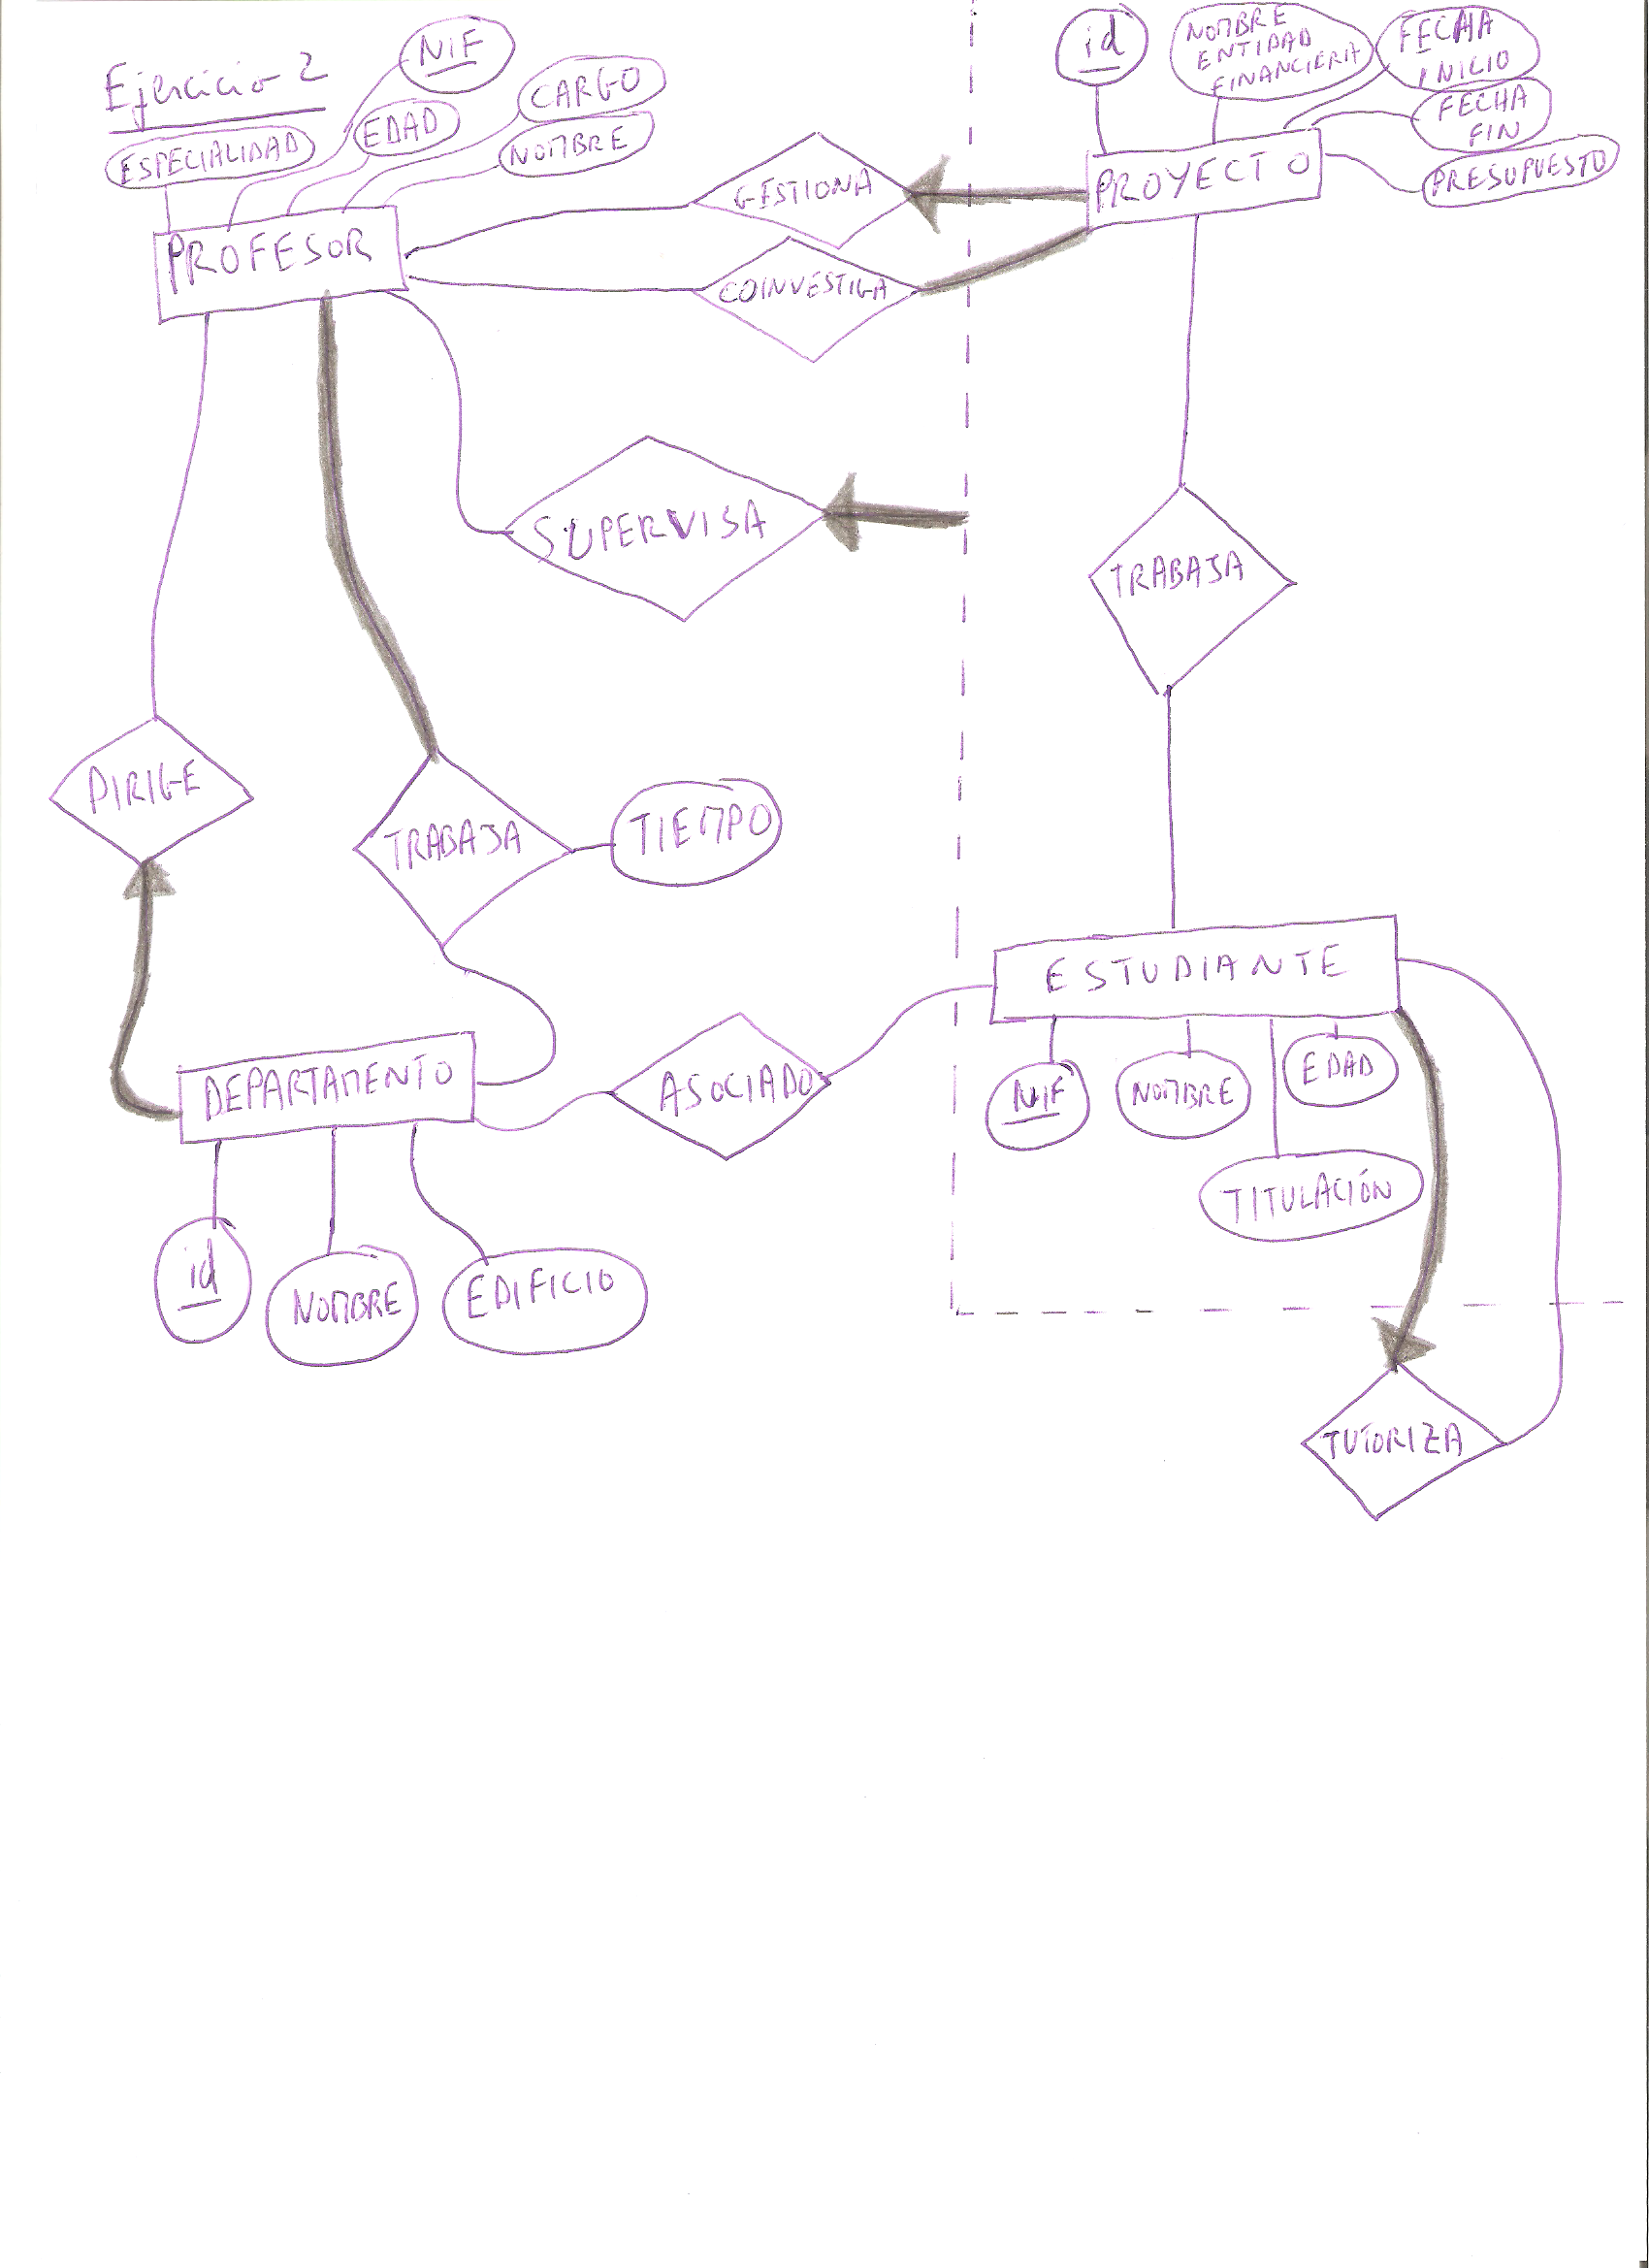 Ejercicio 2
NIF
CARGO
EDAD
NOMBRE
ESPECIALIDAD
PROFESOR
id
NOMBRE
ENTIDAD
FINANCIERA
FECHA
INICIO
FECHA
FIN
PRESUPUESTO
PROYECTO
GESTIONA
COINVESTIGA
SUPERVISA
TRABAJA
DIRIGE
TRABAJA
TIEMPO
ESTUDIANTE
NIF
NOMBRE
EDAD
TITULACIÓN
DEPARTAMENTO
ASOCIADO
id
NOMBRE
EDIFICIO
TUTORIZA